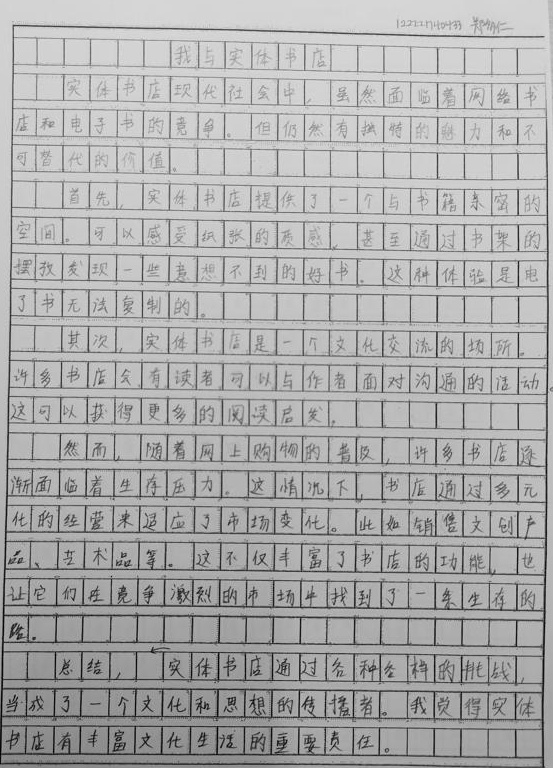 我与实体书店
实体书店现代社会中，虽然面临着网络书
店和电子书的竞争。但仍然有独特的魅力和不
可替代的价值。
首先，实体书店提供了一个与书籍亲密的
空间。可以感受纸张的质感，甚至通过书架的
摆放发现一些意想不到的好书。这种体验是电
子书无法复制的。
其次，实体书店是一个文化交流的场所。
许多书店会有读者可以与作者面对沟通的活动。
这可以获得更多的阅读启发。
然而，随着网上购物的普及，许多书店逐
渐面临着生存压力。这情况下，书店通过多元
化的经营来适应了市场变化。比如销售文创产
品、艺术品等。这不仅丰富了书店的功能，也
让它们在竞争激烈的市场中找到了一条生存的
路。
总结，实体书店通过各种各样的挑战，
当成了一个文化和思想的传播者。我觉得实体
书店有丰富文化生活的重要责任。